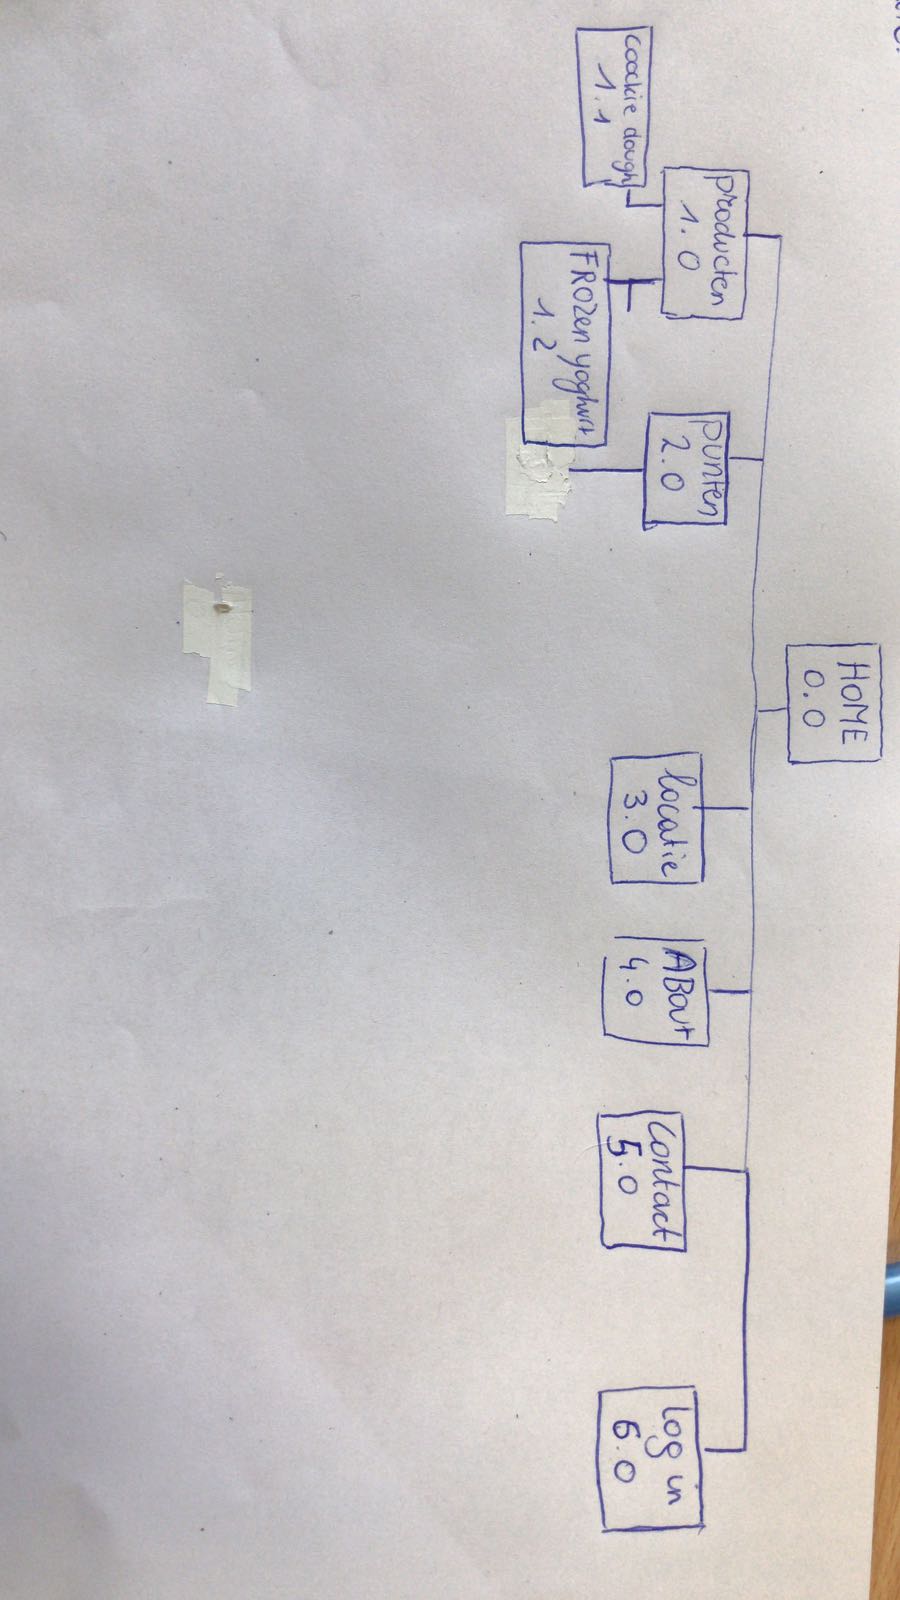 HOME
0.0
producten
1.0
coockie dough
1.1
FROZen yoghurt
1.2
punten
2.0
locatie
3.0
ABout
4.0
contact
5.0
log in
6.0